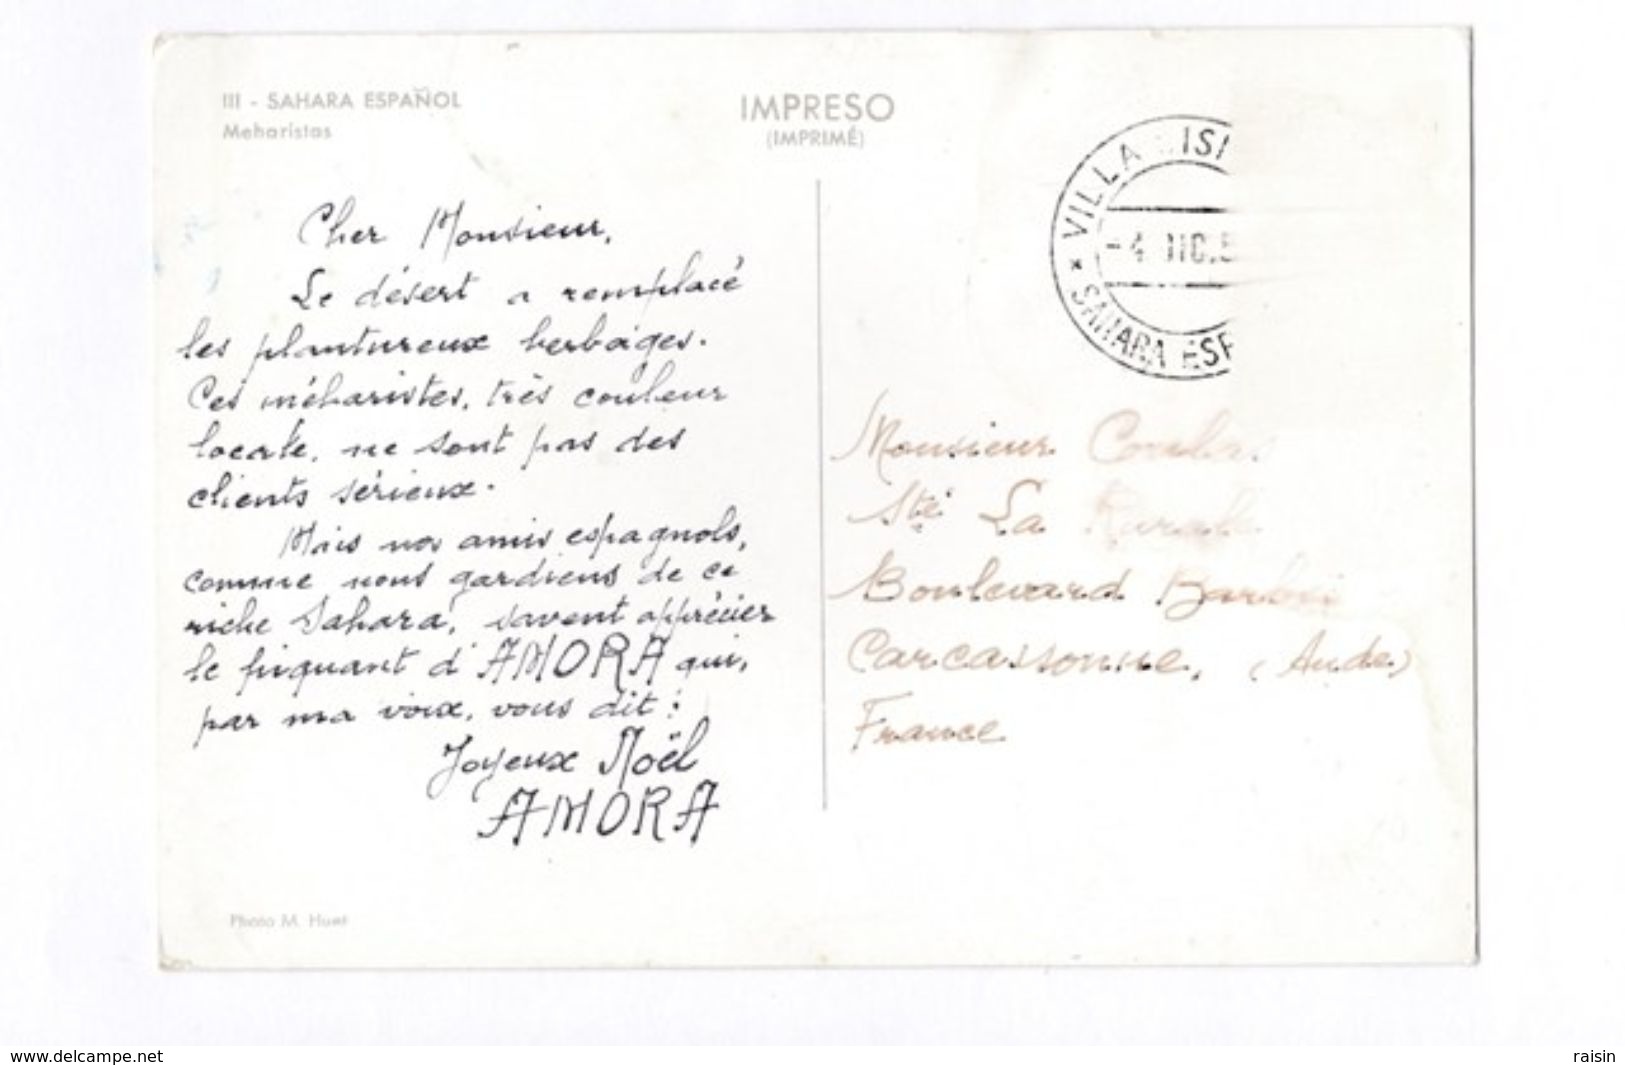 III - SAHARA ESPAÑOL
Meharistas
IMPRESO
(IMPRIMÉ)
VILLA ISI
- 4 DIC. 5
* SAHARA ESP
Cher Monsieur,
Le désert a remplacé
les plantureux herbages.
Ces méharistes, très couleur
locale, ne sont pas des
clients sérieux.
Mais nos amis espagnols,
comme nous gardiens de ce
riche Sahara, savent apprécier
le piquant d'AMORA qui,
par ma voix, vous dit :
Joyeux Noël
AMORA
Photo M. Huet
Monsieur
Sté La Rurale
Boulevard
Carcassonne, (Aude)
France
www.delcampe.net
raisin